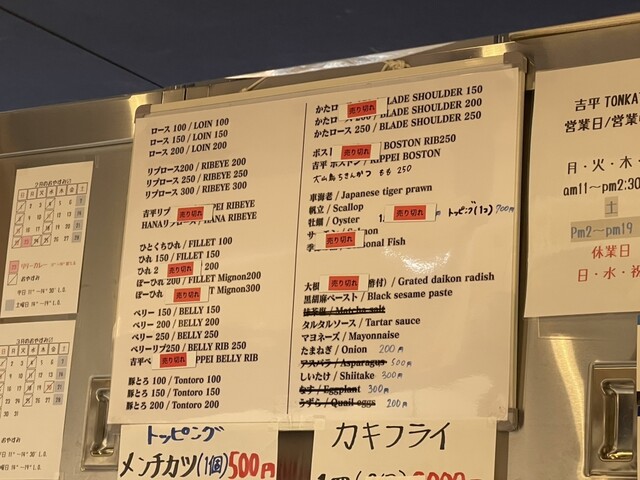 ロース 100 / LOIN 100
ロース 150 / LOIN 150
ロース 200 / LOIN 200
リブロース200 / RIBEYE 200
リブロース 250 / RIBEYE 250
リブロース 300 / RIBEYE 300
吉平リブ 売り切れ PEI RIBEYE
HANAリブロース / HANA RIBEYE
ひとくちひれ / FILLET 100
ひれ 150 / FILLET 150
ひれ 2 売り切れ 200
ぽーひれ 200 / FILLET Mignon200
ぽーひれ 売り切れ T Mignon300
ベリー 150 / BELLY 150
ベリー 200 / BELLY 200
ベリー 250 / BELLY 250
ベリーリブ250 / BELLY RIB 250
吉平ベ 売り切れ PPEI BELLY RIB
豚とろ 100 / Tontoro 100
豚とろ 150 / Tontoro 150
豚とろ 200 / Tontoro 200
かたロ 売り切れ BLADE SHOULDER 150
かたロー 200 / BLADE SHOULDER 200
かたロース 250 / BLADE SHOULDER 250
ボスト 売り切れ BOSTON RIB250
吉平 ボストン / KIPPEI BOSTON
もも 250
車海老 / Japanese tiger prawn
帆立 / Scallop
牡蠣 / Oyster 売り切れ トッピング(1コ) 700円
サーモン / Salmon
季 売り切れ onal Fish
大根 売り切れ 酢付) / Grated daikon radish
黒胡麻ペースト / Black sesame paste
抹茶塩 / Matcha salt
タルタルソース / Tartar sauce
マヨネーズ / Mayonnaise
たまねぎ / Onion 200円
アスパラ / Asparagus 500円
しいたけ / Shiitake 300円
なす / Eggplant 300円
うずら / Quail eggs 200円
トッピング
メンチカツ(1個)500円
カキフライ
吉平 TONKAT
営業日/営業
月・火・木・
am11~pm2:30
土
Pm2~pm19
休業日
日・水・祝
2月のおやすみ
3月のおやすみ